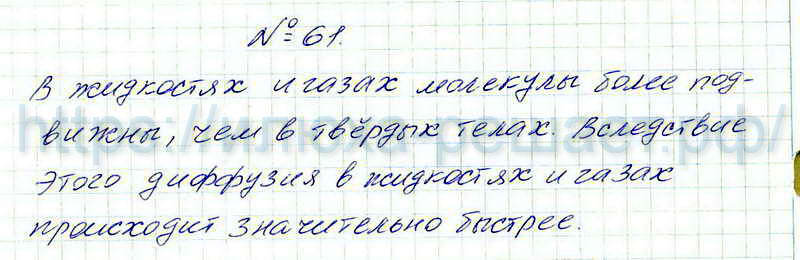 № 61.
В жидкостях и газах молекулы более под-
вижны, чем в твёрдых телах. Вследствие
этого диффузия в жидкостях и газах
происходит значительно быстрее.